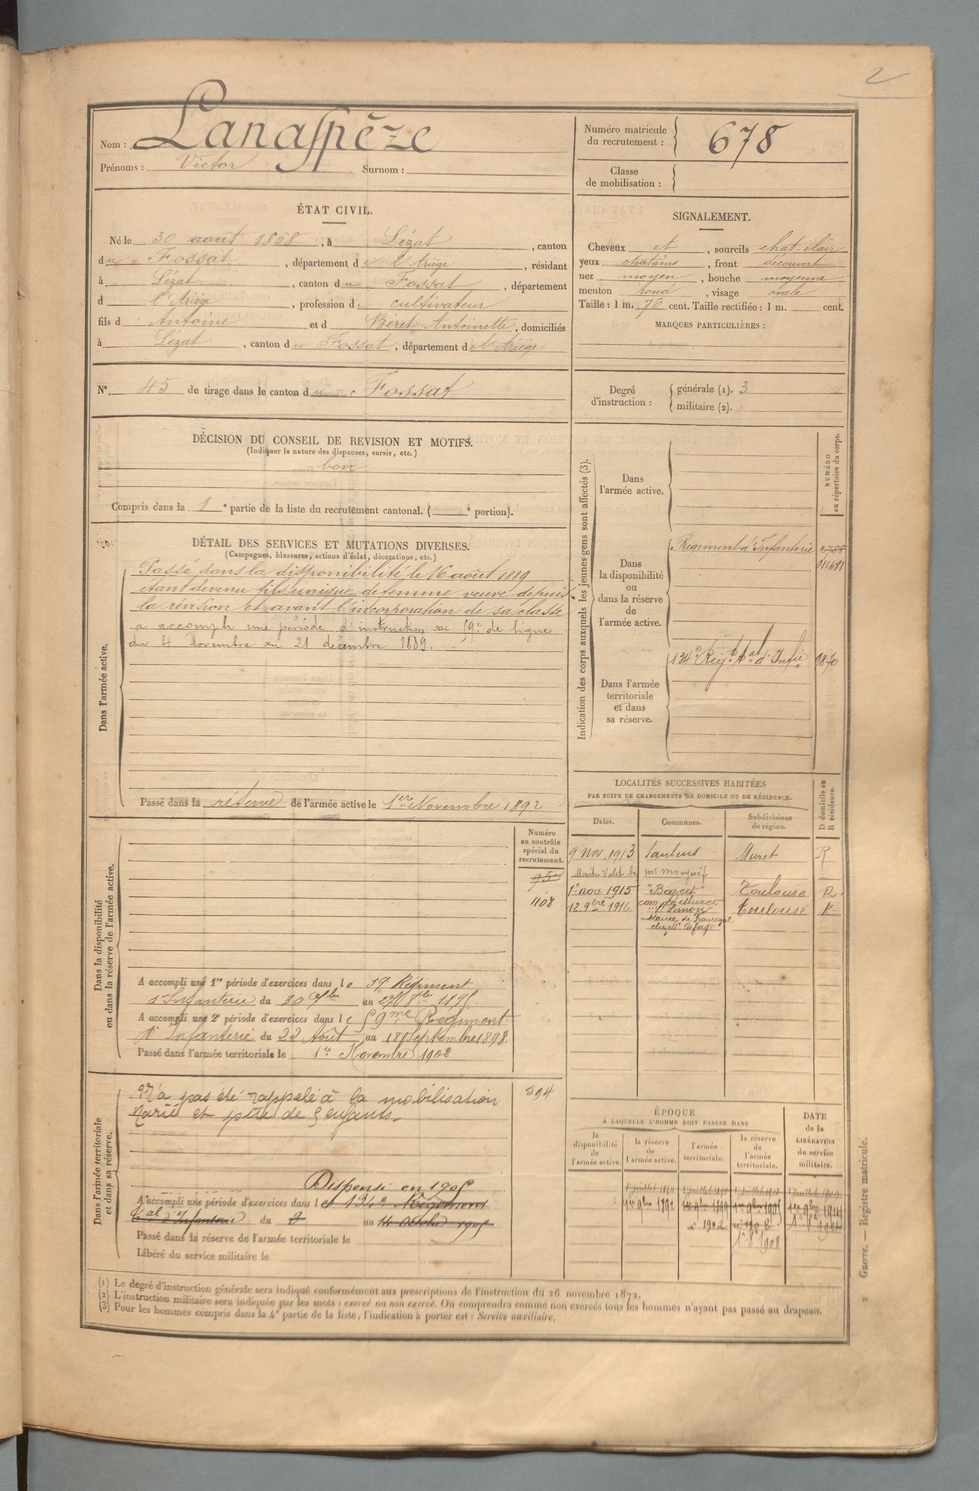 2
Nom : Lanaspèze
Prénoms : Victor Surnom :
Numéro matricule du recrutement : 678
Classe de mobilisation :
ÉTAT CIVIL.
Né le 30 août 1868, à Lézat, canton
du Fossat, département de l'Ariège, résidant
à Lézat, canton du Fossat, département
d l'Ariège, profession de cultivateur
fils d' Antoine et d Béret Antoinette, domiciliés
à Lézat, canton du Fossat, département de l'Ariège
N° 45 de tirage dans le canton d Fossat
SIGNALEMENT.
Cheveux et, sourcils chat. clair
yeux chatains, front découvert
nez moyen, bouche moyenne
menton rond, visage ovale
Taille : 1 m. 76 cent. Taille rectifiée : 1 m. cent.
MARQUES PARTICULIÈRES :
Degré d'instruction : générale (1). 3
militaire (2).
DÉCISION DU CONSEIL DE REVISION ET MOTIFS.
(Indiquer la nature des dispenses, sursis, etc.)
bon
Compris dans la 1e partie de la liste du recrutement cantonal. ( e portion).
DÉTAIL DES SERVICES ET MUTATIONS DIVERSES.
(Campagnes, blessures, actions d'éclat, décorations, etc.)
Dans l'armée active.
Passé dans la disponibilité le 16 août 1889
étant devenu fils unique de femme veuve depuis
la revision et avant l'incorporation de sa classe
a accompli une période d'instruction au 59e de ligne
du 4 Novembre au 21 décembre 1889.
Passé dans la réserve de l'armée active le 1er Novembre 1892
Indication des corps auxquels les jeunes gens sont affectés (3).
NUMÉRO au répertoire du corps.
Dans l'armée active.
Dans la disponibilité ou dans la réserve de l'armée active.
Regiment d'Infanterie
Dans l'armée territoriale et dans sa réserve.
134e Regt tal d'Infie 9870
LOCALITÉS SUCCESSIVES HABITÉES
PAR SUITE DE CHANGEMENTS DE DOMICILE OU DE RÉSIDENCE.
D domicile ou R résidence.
Dates. Communes. Subdivisions de région.
9 Nov 1913 Muret R
1er nov 1915 Toulouse R.
12 9bre 1916 "St Simon" Toulouse R
Dans la disponibilité ou dans la réserve de l'armée active.
Numéro au contrôle spécial du recrutement.
1108
A accompli une 1re période d'exercices dans le 59 Régiment
d'Infanterie du 30 au 1895
A accompli une 2e période d'exercices dans le 59me Régiment
d'Infanterie du 22 Août au 18 Septembre 1898.
Passé dans l'armée territoriale le 1er Novembre 1902
Dans l'armée territoriale et dans sa réserve.
594
N'a pas été rappelé à la mobilisation
Marié et père de 5 enfants.
Dispensé en 1905
A accompli une période d'exercices dans le 134e Régiment
tal d'Infanterie du 2 au 14 Octobre 1905
Passé dans la réserve de l'armée territoriale le
Libéré du service militaire le
ÉPOQUE
À LAQUELLE L'HOMME DOIT PASSER DANS
la disponibilité de l'armée active.
la réserve de l'armée active.
l'armée territoriale.
la réserve de l'armée territoriale.
DATE de la LIBÉRATION du service militaire.
1er 9bre 1892
(1) Le degré d'instruction générale sera indiqué conformément aux prescriptions de l'instruction du 26 novembre 1872.
(2) L'instruction militaire sera indiquée par les mots : exercé ou non exercé. On comprendra comme non exercés tous les hommes n'ayant pas passé au drapeau.
(3) Pour les hommes compris dans la 4e partie de la liste, l'indication à porter est : Service auxiliaire.
Guerre. — Registre matricule.